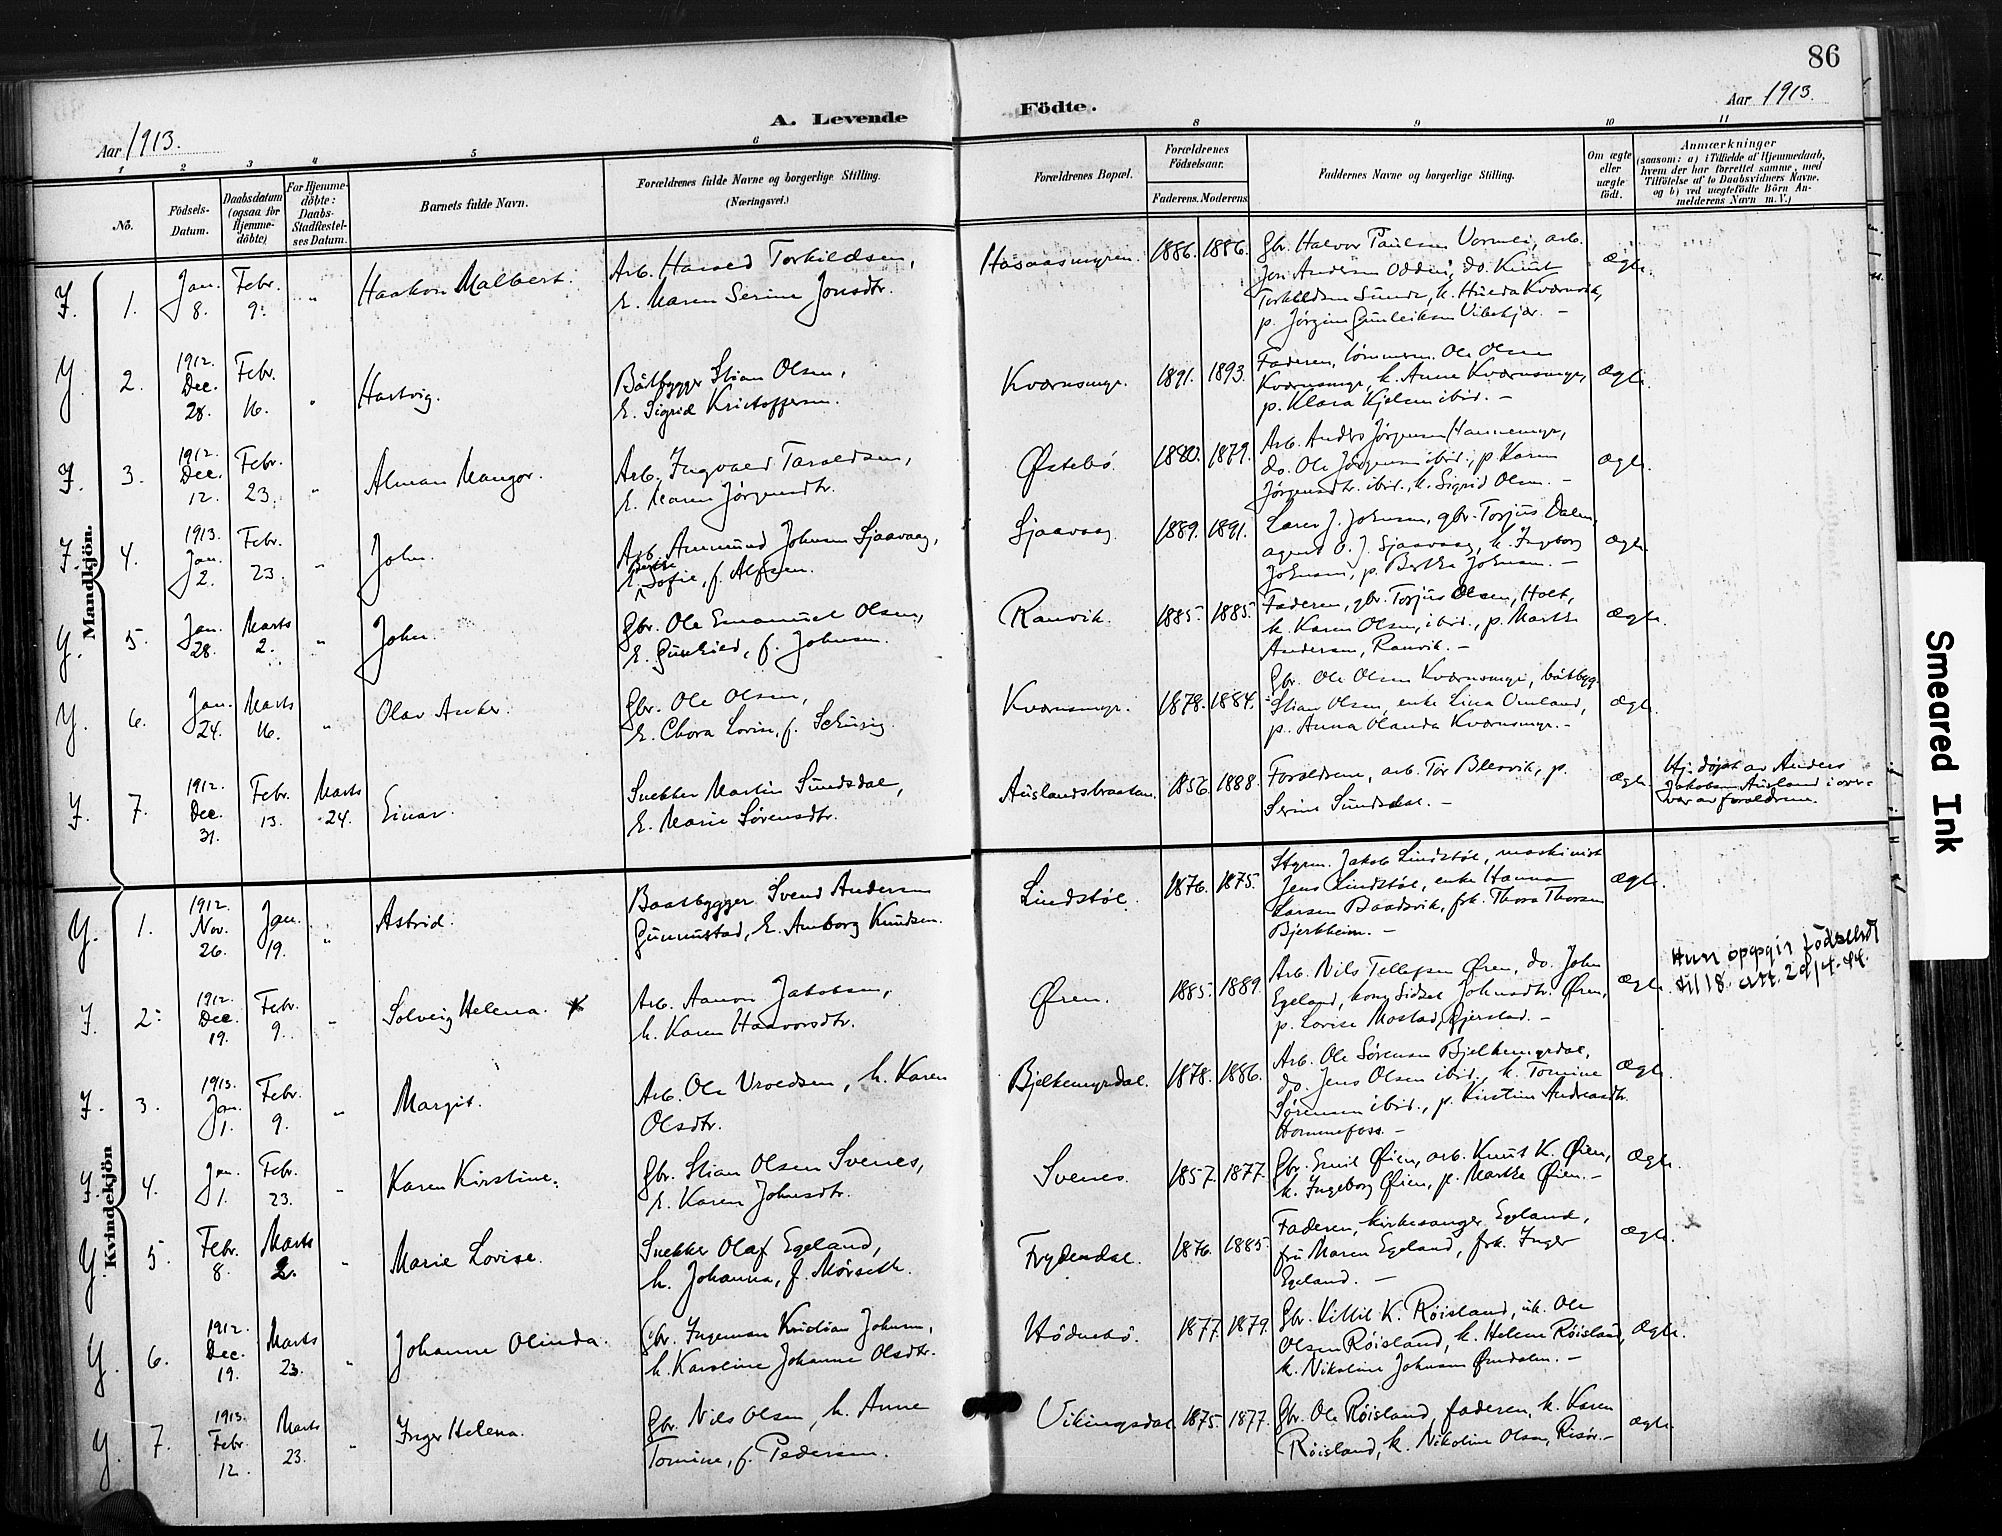 86
A. Levende Födte.
Aar 1913.
Aar 1913.
1 2 3 4 5 6 8 9 10 11
No.
Födsels-Datum.
Daabsdatum (ogsaa for Hjemme-döbte)
For Hjemme-döbte: Daabs-Stadfestel-ses Datum.
Barnets fulde Navn.
Forældrenes fulde Navne og borgerlige Stilling. (Næringsvei.)
Forældrenes Bopæl.
Forældrenes Födselsaar.
Faderens. Moderens.
Faddernes Navne og borgerlige Stilling.
Om ægte eller uægte födt.
Anmærkninger
(saasom: a) i Tilfælde af Hjemmedaab,
hvem der har forrettet samme, med
Tilföielse af to Daabsvidners Navne.
og b) ved uægtefödte Börn An-
melderens Navn m. V.)
Mandkjön.
1. Jan. 8. Febr. 9. Haakon Malbert.
Arb. Harald Torkildsen,
E. Maren Serine Jonsdtr.
1886. 1886.
Gbr. Halvor Paulsen, arb.
Jon Andersen, do. Knut
Torkildsen Sunde, k. Hulda
p. Jørgine Gunleiksen
ægte.
2. 1912. Dec. 28. Febr. 16. Hartvig.
Båtbygger Stian Olsen,
E. Sigrid Kristoffersen.
Kvernsmyr. 1891. 1893.
Faderen, tømmerm. Ole Olsen
Kvernsmyr, k. Anne Kvernsmyr,
p. Klara Kjelsen ibid. –
Ægte.
3. 1912. Dec. 12. Febr. 23. Alman Mangor.
Arb. Ingvald Taraldsen,
E. Maren Jørgensdtr.
Østebø. 1880. 1879.
Arb. Anders Jørgensen Hannemyr,
do. Ole Jørgensen ibid., p. Karen
Jørgensdtr. ibid., k. Sigrid Olsen. –
Ægte.
4. 1913. Jan. 2. Febr. 23. John.
Arb. Anmund Johnsen Sjaavaag,
E. Berthe Sofie, f. Alfsen.
Sjaavaag 1889. 1891.
Lars J. Johnsen, gbr. Torjus Dalen,
agent O. J. Sjaavaag, k. Ingeborg
Johnsen, p. Berthe Johnsen. –
Ægte.
5. Jan. 28. Marts 2. John.
Gbr. Ole Emanuel Olsen,
E. Gunhild, f. Johnsen.
Ranvik. 1885. 1885.
Faderen, gbr. Torjus Olsen, Holt,
k. Karen Olsen, ibid., p. Marthe
Andersen, Ranvik. –
Ægte.
6. Jan. 24. Marts 16. Olav Anker.
Gbr. Ole Olsen,
E. Chora Lovise, f. Schürig.
Kvernsmyr. 1878. 1884.
Gbr. Ole Olsen Kvernsmyr, båtbyg.
Stian Olsen, enke Lina Omland,
p. Anna Olanda Kvernsmyr. –
Ægte.
7. 1912. Dec. 31. Febr. 13. Marts 24. Einar.
Snekker Martin Sundsdal,
E. Marie Sørensdtr.
Auslandsbraaten. 1888.
Forældrene, arb. Tor Blesvik, p.
Serine Sundsdal. –
ægte.
Hj. døpt av Anders
Jakobsen Ausland i over-
vær av forældrene.
Kvindekjön
1. 1912. Nov. 26. Jan. 19. Astrid.
Baatbygger Svend Andersen
Gunnustad, E. Amborg Knudsen.
Lindstøl. 1876. 1875.
Styrm. Jakob Lindstøl, maskinist
Jens Lindstøl, enke Hanna
Larsen Baadsvik, frk. Thora Thorsen
Bjerkheim. –
Ægte.
2. 1912. Dec. 19. Febr. 9. Solveig Helena.
Arb. Aanon Jakobsen,
h. Karen Haavorsdtr.
Øren. 1885. 1889.
Arb. Nils Tellefsen Øren, do. John
Egeland, kone Sidsel Johnsdtr. Øren,
p. Lovise Mostad, Gjerstad. –
Ægte.
Hun opgir födselsd
til 18. att. 29/4-44.
3. 1913. Jan. 1. Febr. 9. Margit.
Arb. Ole Vroldsen, h. Karen
Olsdtr.
Bjelkemyrdal. 1878. 1886.
Arb. Ole Sørensen Bjelkemyrdal,
do. Jens Olsen ibid., k. Tomine
Sørensen ibid., p. Kirstine Andreasdtr.
Hommefoss. –
Ægte.
4. Jan. 1. Febr. 23. Karen Kirstine.
Gbr. Stian Olsen Svenes,
E. Karen Johnsdtr.
Svenes. 1857. 1877.
Gbr. Emil Øien, arb. Knut K. Øien,
k. Ingeborg Øien, p. Marthe Øien. –
Ægte.
5. Febr. 8. Marts 2. Marie Lovise.
Snekker Olaf Egeland,
h. Johanna, f. Mørseth.
Frydendal. 1876. 1885.
Faderen, kirkesanger Egeland,
fru Maren Egeland, frk. Inger
Egeland. –
Ægte.
6. 1912. Dec. 19. Marts 23. Johanne Olinda.
Gbr. Ingeman Kristian Johnsen,
h. Karoline Johanne Olsdtr.
Hødnebø. 1877. 1879.
Gbr. Kittil K. Røisland, uk. Ole
Olsen Røisland, k. Helene Røisland,
k. Nikoline Johnsen –
Ægte.
7. 1913. Febr. 12. Marts 23. Inger Helena.
Gbr. Nils Olsen, h. Anne
Tomine, f. Pedersen.
Vikingsdal 1875. 1877.
Gbr. Ole Røisland, faderen, k. Karen
Røisland, k. Nikoline Olsen, Risør. –
Ægte.
Smeared Ink